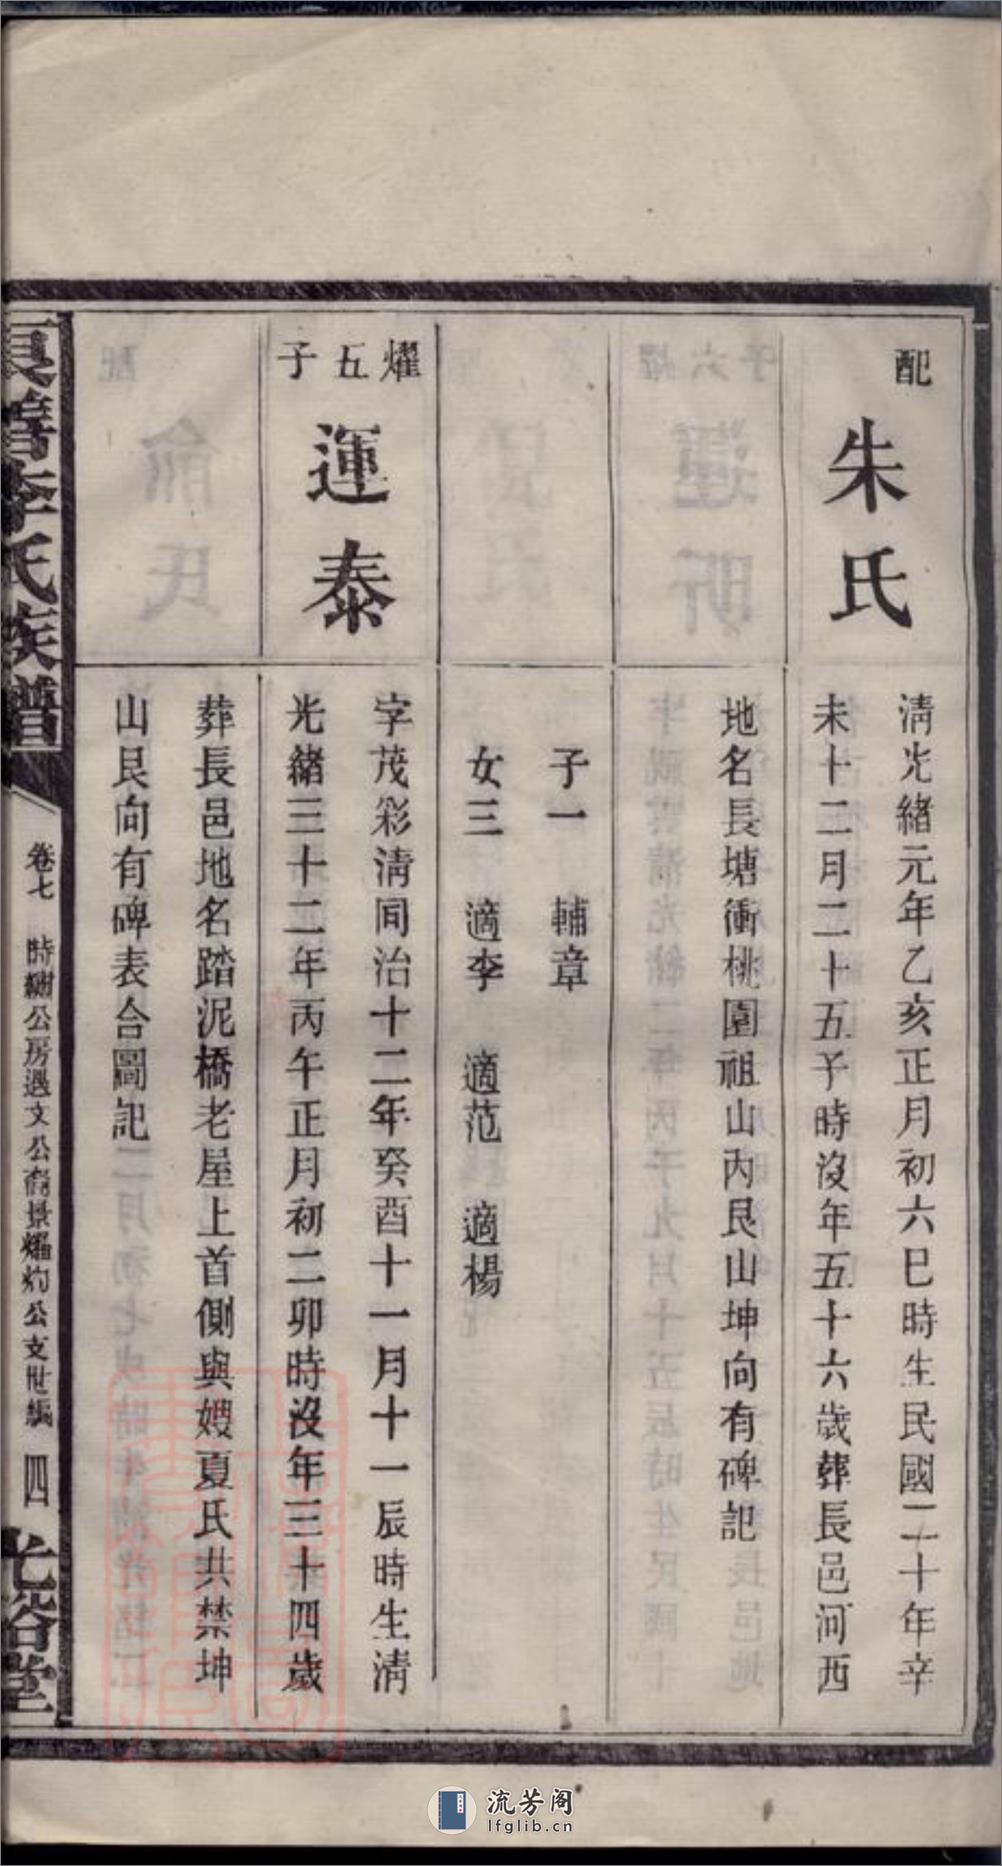 配
朱氏
清光緒元年乙亥正月初六巳時生民國二十年辛
未十二月二十五子時沒年五十六歲葬長邑河西
地名長塘衝桃園祖山內艮山坤向有碑記
子一　輔章
女三　適李　適范　適楊
燿五子
運泰
字茂彩清同治十二年癸酉十一月十一辰時生清
光緒三十二年丙午正月初二卯時沒年三十四歲
葬長邑地名踏泥橋老屋上首側與嫂夏氏共禁坤
山艮向有碑表合圖記
李氏族譜
卷七　時公房遇文公裔景燿灼公支世編　四
光裕堂
流芳阁
lfglib.cn